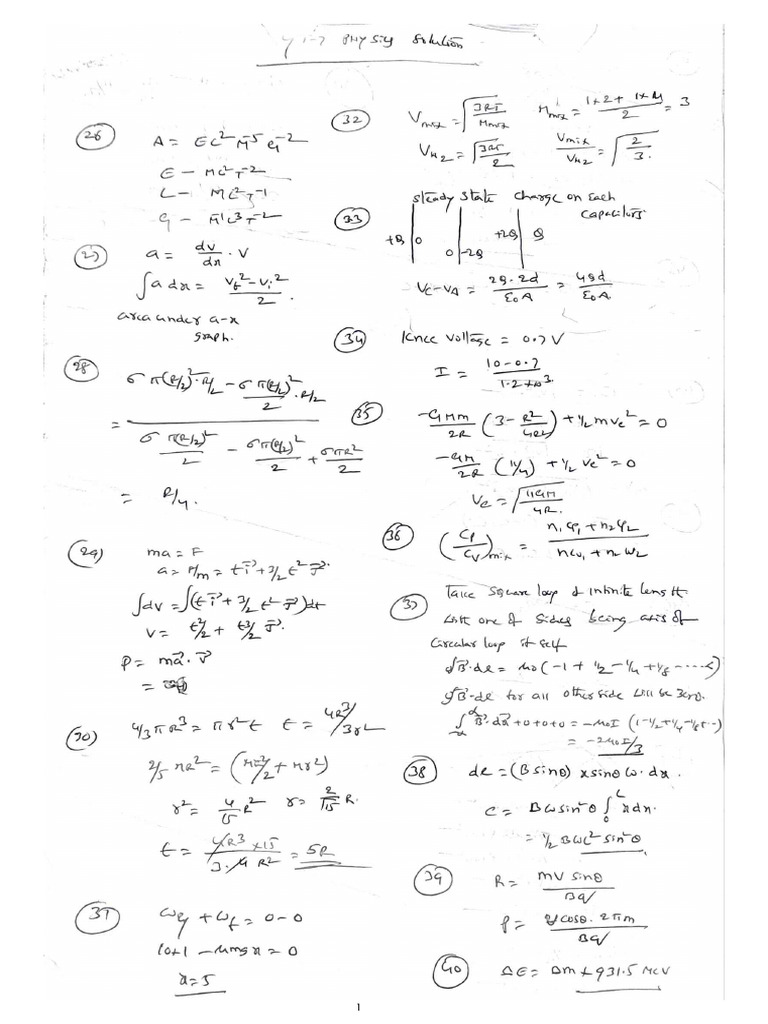 Physics Solution
(26) A = EL² M⁻⁵ G⁻²
E – ML²T⁻²
L – ML²T⁻¹
G – M⁻¹L³T⁻²
(27) a = dv/dx · V
∫a dx = (V_f² – V_i²)/2.
area under a–x
graph.
(28) (σπ(R/2)²·R/2 – σπ(R/2)²/2 · R/2)
= / (σπ(R/2)²/2 – σπ(R/2)²/2 + σπR²/2)
= R/4.
(29) ma = F
a = F/m = t i⃗ + 3/2 t² j⃗.
∫dv = ∫(t i⃗ + 3/2 t² j⃗)dt
V = t²/2 + t³/2 j⃗.
P = ma⃗ · v⃗
=
(30) 4/3 πR³ = πr²t t = 4R³/3r²
2/5 MR² = (Mr²/2 + Mr²)
r² = 4/15 R² r = 2/√15 R.
t = 4R³×15/3·4R² = 5R
(31) ω_g + ω_f = 0–0
10×1 – μmgx = 0
x = 5
(32) V_mix = √(3RT/M_mix) M_mix = (1×2 + 1×4)/2 = 3
V_H₂ = √(3RT/2) V_mix/V_H₂ = √(2/3).
(33) steady state charge on each
capacitors
+Q 0 0 –2Q +2Q Q
V_C–V_A = 2Q·2d/ε₀A = 4Qd/ε₀A
(34) Knee voltage = 0.7V
I = (10–0.7)/(1.2×10³).
(35) –GMm/2R (3 – R²/4R²) + ½mv_e² = 0
–GM/2R (11/4) + ½ v_e² = 0
V_e = √(11GM/4R).
(36) (C_P/C_V)_mix = (n₁CP₁ + n₂CP₂)/(n₁CV₁ + n₂CV₂)
(37) Take square loop of infinite length
with one of sides being axis of
circular loop it self
∮B⃗·dl = μ₀(–1 + ½ –¼ + ⅛ ------)
∮B·dl for all other side will be zero.
∫B⃗·dl⃗ + 0+0+0 = –μ₀I (1–½+¼–⅛---)
= –2μ₀I/3
(38) de = (B sinθ) x sinθ ω·dx.
e = Bω sin²θ ∫₀ᴸ x dx.
= ½ BωL² sin²θ
(39) R = mv sinθ/Bq
P = v cosθ·2πm/Bq
(40) ΔE = Δm × 931.5 MeV
1